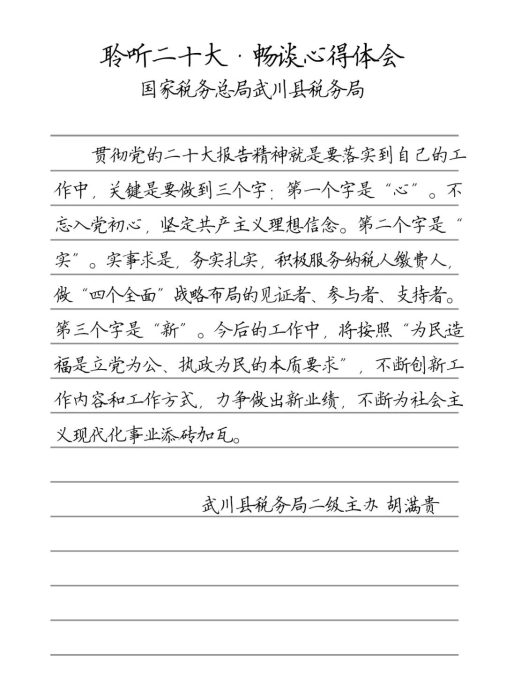 聆听二十大·畅谈心得体会
国家税务总局武川县税务局
贯彻党的二十大报告精神就是要落实到自己的工
作中，关键是要做到三个字：第一个字是“心”。不
忘入党初心，坚定共产主义理想信念。第二个字是“
实”。实事求是，务实扎实，积极服务纳税人缴费人，
做“四个全面”战略布局的见证者、参与者、支持者。
第三个字是“新”。今后的工作中，将按照“为民造
福是立党为公、执政为民的本质要求”，不断创新工
作内容和工作方式，力争做出新业绩，不断为社会主
义现代化事业添砖加瓦。
武川县税务局二级主办 胡满贵